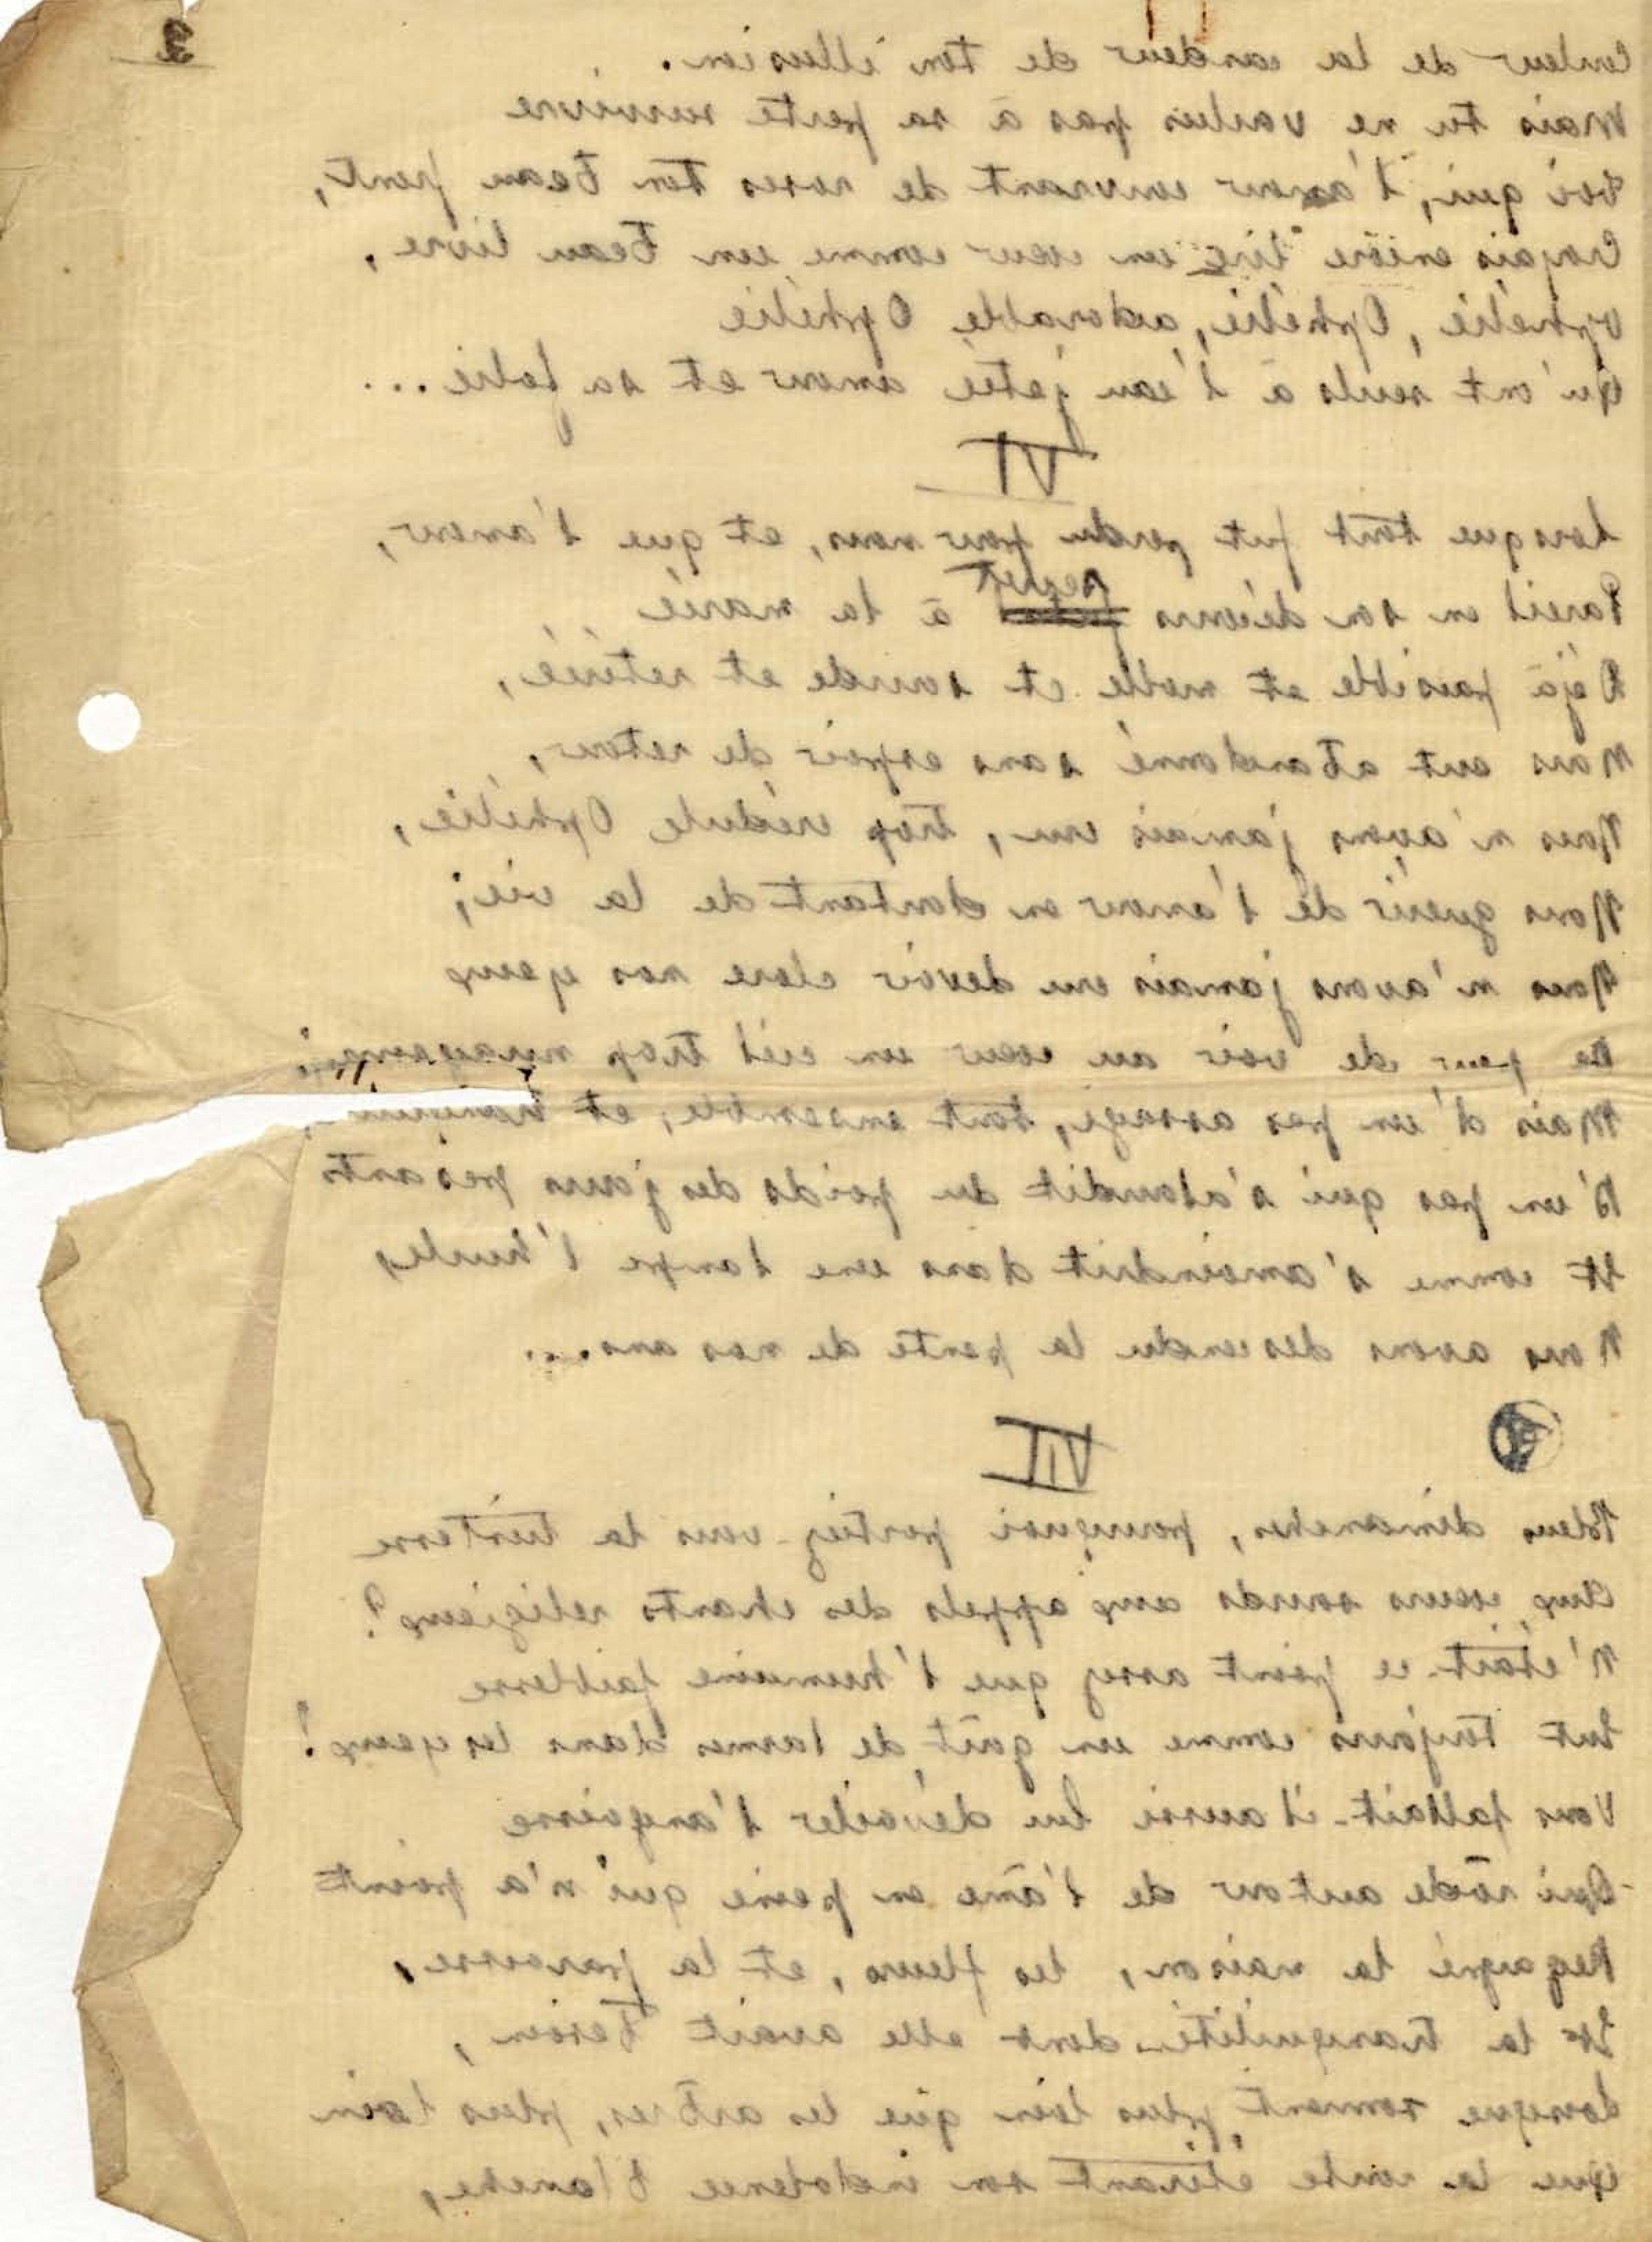 3
Couleur de la candeur de ton illusion.
Mais tu ne voulus pas à sa perte survivre
Toi qui, l'amour couvrant de roses ton beau front,
Croyais encore lire un cœur comme un beau livre,
Ophélie, Ophélie, adorable Ophélie
Qu'ont seuls à l'eau jetée amour et sa folie...
VI
Lorsque tout fut perdu pour nous, et que l'amour,
Pareil en son décours à la marée
Déjà paisible et molle et sourde et retirée,
Nous eut abandonné sans espoir de retour,
Nous n'avons jamais cru, trop crédule Ophélie,
Nous guérir de l'amour en doutant de la vie;
Nous n'avons jamais cru devoir clore nos yeux
De peur de voir au cœur un ciel trop nuageux;
Mais d'un pas assagi, tout ensemble, et tranquille,
D'un pas qui s'alourdit du poids des jours pesants
Et comme s'amoindrit dans une lampe l'huile,
Nous avons descendu la pente de nos ans...
VII
Bleus dimanches, pourquoi portiez-vous la tristesse
Aux cœurs sourds aux appels des chants religieux?
N'était-ce point assez que l'humaine faiblesse
Eut toujours comme un goût de larmes dans les yeux!
Vous fallait-il aussi lui dévoiler l'angoisse
Qui rôde autour de l'âme en peine qui n'a point
Regagné la maison, les fleurs, et la paroisse,
Et la tranquilité dont elle avait besoin,
Lorsque sonnent plus loin que les arbres, plus loin
Que la combe étirant son indolence blanche,